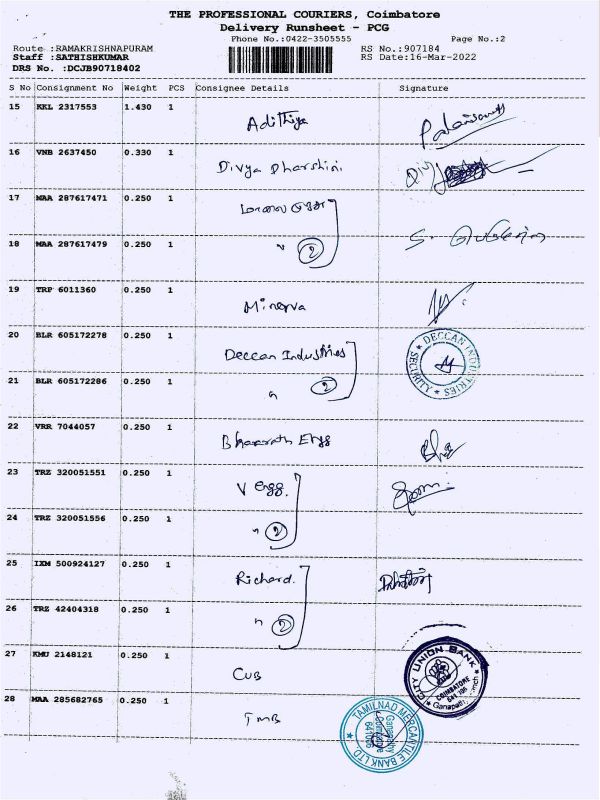 THE PROFESSIONAL COURIERS, Coimbatore
Delivery Runsheet - PCG
Phone No.:0422-3505555 Page No.:2
Route :RAMAKRISHNAPURAM RS No.:907184
Staff :SATHISHKUMAR RS Date:16-Mar-2022
DRS No. :DCJB90718402
S No Consignment No Weight PCS Consignee Details Signature
15 KKL 2317553 1.430 1 Adithya
16 VNB 2637450 0.330 1 Divya Dharshini.
17 MAA 287617471 0.250 1
18 MAA 287617479 0.250 1 " 2
19 TRP 6011360 0.250 1 Minerva
20 BLR 605172278 0.250 1 Deccan Industries
DECCAN INDUSTRIES
SECURITY
21 BLR 605172286 0.250 1 " 2
22 VRR 7044057 0.250 1 Bhaarath Engg
23 TRZ 320051551 0.250 1 V Engg.
24 TRZ 320051556 0.250 1 " 2
25 IXM 500924127 0.250 1 Richard.
26 TRZ 42404318 0.250 1 " 2
27 KMU 2148121 0.250 1 CUB
CITY UNION BANK
COIMBATORE
28 MAA 285682765 0.250 1 TMB
TAMILNAD MERCANTILE BANK LTD.
Coimbatore